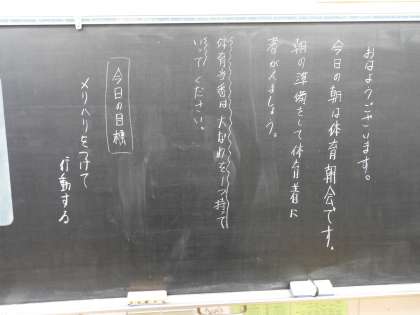 おはようございます。
今日の朝は体育朝会です。
朝の準備をして体育着に
着がえましょう。
体育当番は大なわを一つ持って
いってください。
今日の目標
メリハリをつけて
行動する